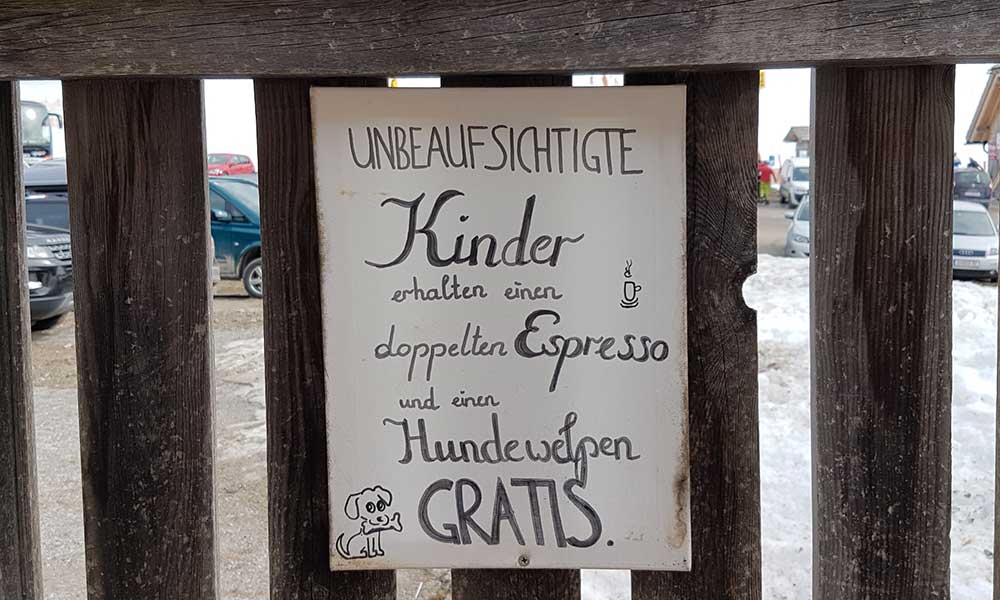 UNBEAUFSICHTIGTE
Kinder
erhalten einen
doppelten Espresso
und einen
Hundewelpen
GRATIS.